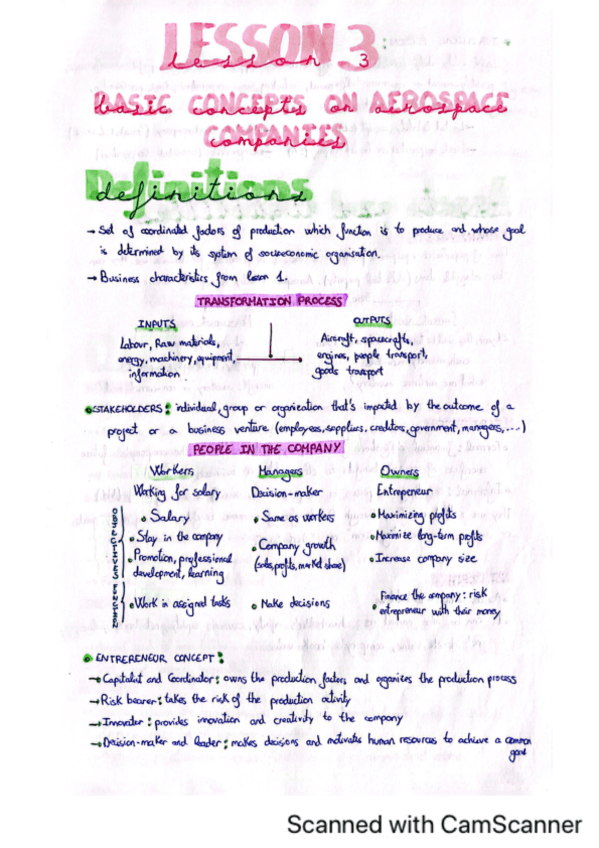 LESSON 3
lesson 3
BASIC CONCEPTS ON AEROSPACE
COMPANIES
Definitions
definitions
→ Set of coordinated factors of production which function is to produce and whose goal
is determined by its system of socioeconomic organisation.
→ Business characteristics from lesson 1.
TRANSFORMATION PROCESS
INPUTS
Labour, Raw materials,
energy, machinery, equipment,
information
OUTPUTS
Aircraft, spacecrafts,
engines, people transport,
goods transport
STAKEHOLDERS: individual, group or organization that's impacted by the outcome of a
project or a business venture (employees, suppliers, creditors, government, managers,...)
PEOPLE IN THE COMPANY
Workers Managers Owners
Working for salary Decision-maker Entrepeneur
OBJECTIVES
• Salary • Same as workers • Maximizing profits
• Stay in the company • Company growth • Maximize long-term profits
• Promotion, professional (sales, profits, market share) • Increase company size
development, learning
FUNCTION
• Work in assigned tasks • Make decisions • Finance the company: risk
entrepreneur with their money
• ENTREPRENEUR CONCEPT:
→ Capitalist and Coordinator: owns the production factors, and organizes the production process
→ Risk bearer: takes the risk of the production activity
→ Innovator: provides innovation and creativity to the company
→ Decision-maker and leader: makes decisions and motivates human resources to achieve a common
goal
Scanned with CamScanner